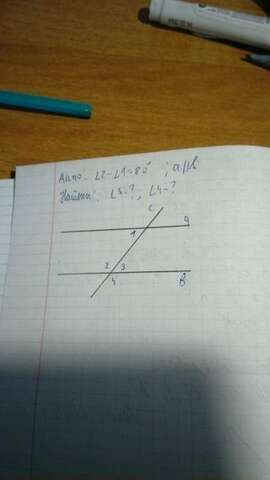 Дано: ∠2-∠1=80° ; a∥b
Найти: ∠3-?, ∠4-?
c
a
1
2 3
4
b